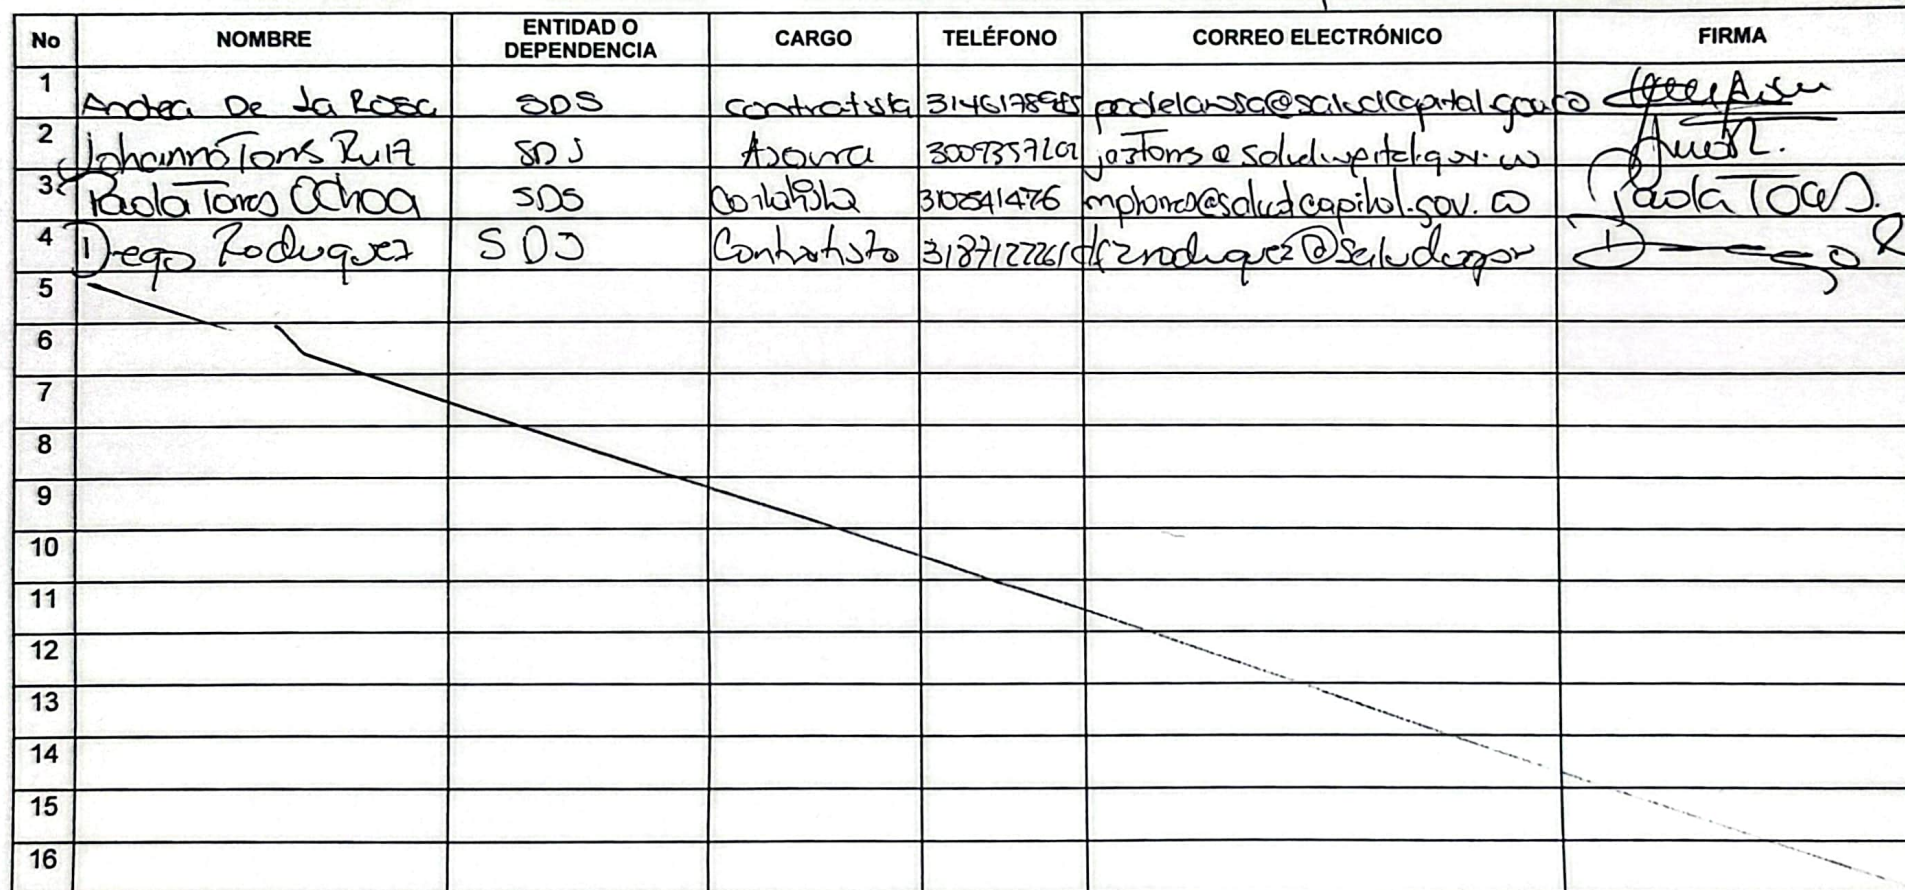 No NOMBRE ENTIDAD O DEPENDENCIA CARGO TELÉFONO CORREO ELECTRÓNICO FIRMA
1 Andrea De La Rosa SDS contratista 3146178985 @saludcapital.gov.co
2 Johanna Torres Ruiz SDS Asesora 3009357202 @saludcapital.gov.co
3 Paola Torres Ochoa SDS Contratista 3102541476 mptorres@saludcapital.gov.co Paola Torres.
4 Diego Rodriguez SDS Contratista 3187122261 Diego R
5
6
7
8
9
10
11
12
13
14
15
16